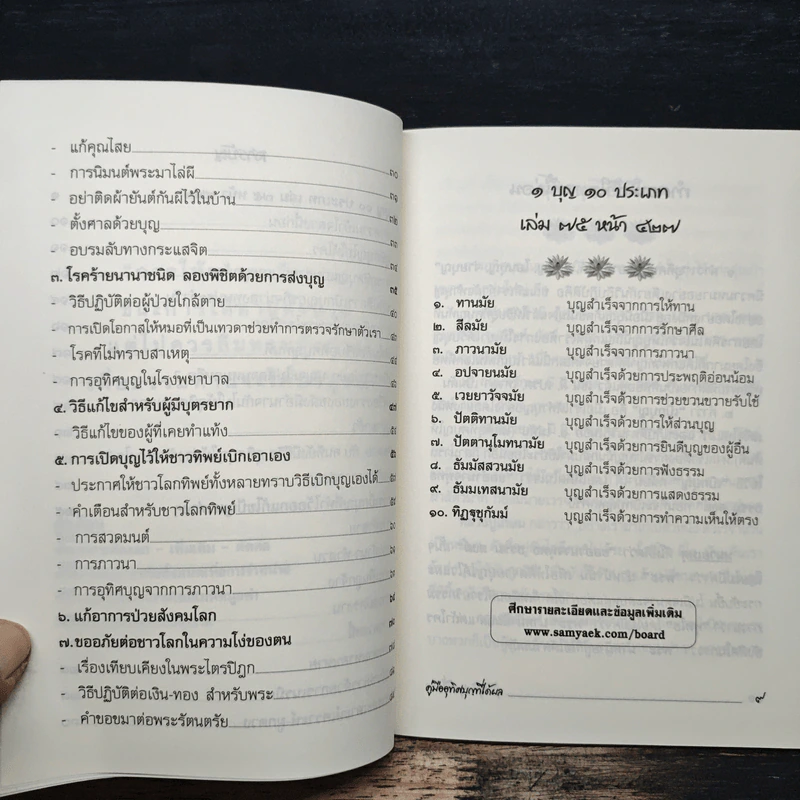 - แก้คุณไสย ๓๐
- การนิมนต์พระมาไล่ผี ๓๑
- อย่าติดผ้ายันต์กันผีไว้ในบ้าน ๓๒
- ตั้งศาลด้วยบุญ ๓๓
- อบรมลับทางกระแสจิต ๓๔
๓. โรคร้ายนานาชนิด ลองพิชิตด้วยการส่งบุญ ๓๕
- วิธีปฏิบัติต่อผู้ป่วยใกล้ตาย
- การเปิดโอกาสให้หมอที่เป็นเทวดาช่วยทำการตรวจรักษาตัวเรา
- โรคที่ไม่ทราบสาเหตุ
- การอุทิศบุญในโรงพยาบาล
๔. วิธีแก้ไขสำหรับผู้มีบุตรยาก
- วิธีแก้ไขของผู้ที่เคยทำแท้ง
๕. การเปิดบุญไว้ให้ชาวทิพย์เบิกเอาเอง
- ประกาศให้ชาวโลกทิพย์ทั้งหลายทราบวิธีเบิกบุญเองได้
- คำเตือนสำหรับชาวโลกทิพย์
- การสวดมนต์
- การภาวนา
- การอุทิศบุญจากการภาวนา
๖. แก้อาการป่วยสังคมโลก
๗. ขออภัยต่อชาวโลกในความโง่ของตน
- เรื่องเทียบเคียงในพระไตรปิฎก
- วิธีปฏิบัติต่อเงิน-ทอง สำหรับพระ
- คำขอขมาต่อพระรัตนตรัย
๑ บุญ ๑๐ ประเภท
เล่ม ๗๕ หน้า ๔๒๗
๑. ทานมัย บุญสำเร็จจากการให้ทาน
๒. สีลมัย บุญสำเร็จจากการรักษาศีล
๓. ภาวนามัย บุญสำเร็จจากการภาวนา
๔. อปจายนมัย บุญสำเร็จด้วยการประพฤติอ่อนน้อม
๕. เวยยาวัจจมัย บุญสำเร็จด้วยการช่วยขวนขวายรับใช้
๖. ปัตติทานมัย บุญสำเร็จด้วยการให้ส่วนบุญ
๗. ปัตตานุโมทนามัย บุญสำเร็จด้วยการยินดีบุญของผู้อื่น
๘. ธัมมัสสวนมัย บุญสำเร็จด้วยการฟังธรรม
๙. ธัมมเทสนามัย บุญสำเร็จด้วยการแสดงธรรม
๑๐. ทิฏฐุชุกัมม์ บุญสำเร็จด้วยการทำความเห็นให้ตรง
ศึกษารายละเอียดและข้อมูลเพิ่มเติม
www.samyaek.com/board
คู่มืออุทิศบุญที่ได้ผล ๙